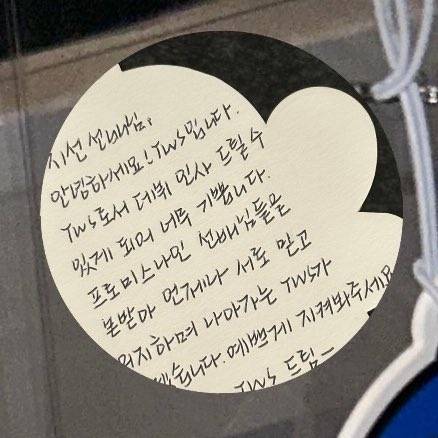 지선 선배님,
안녕하세요! TWS입니다.
TWS로서 데뷔 인사 드릴 수
있게 되어 너무 기쁩니다.
프로미스나인 선배님들을
본받아 언제나 서로 믿고
의지하며 나아가는 TWS가
되겠습니다. 예쁘게 지켜봐주세요
TWS 드림—